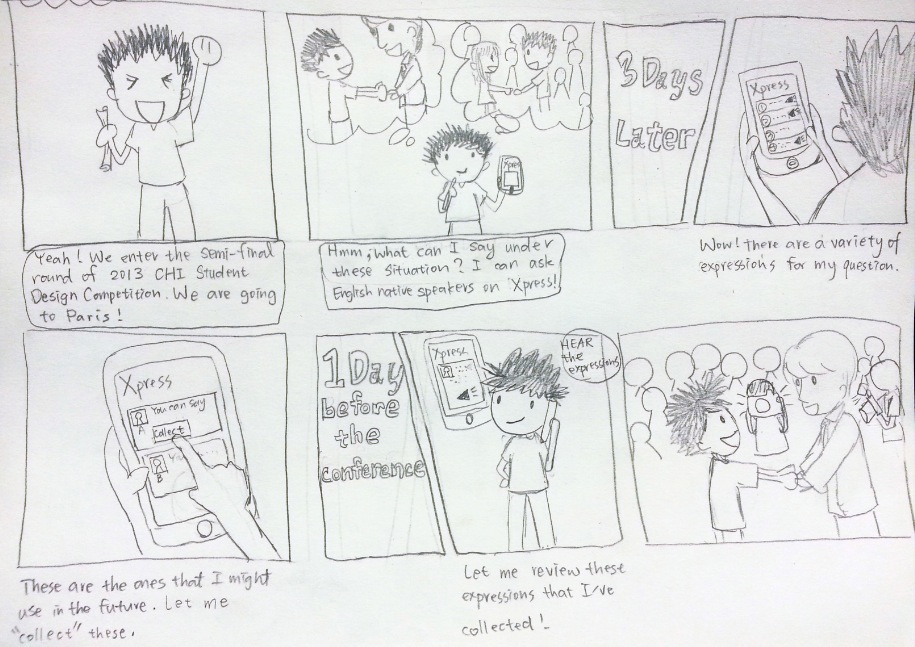 Yeah! We enter the semi-final
round of 2013 CHI Student
Design Competition. We are going
to Paris!
Xpress
Hmm, what can I say under
these situation? I can ask
English native speakers on Xpress!
3 Days
Later
Xpress
Wow! there are a variety of
expressions for my question.
Xpress
You can say
collect
A
B
These are the ones that I might
use in the future. Let me
"collect" these.
1 Day
before
the
conference
Xpress
HEAR
the
expressions
Let me review these
expressions that I've
collected!